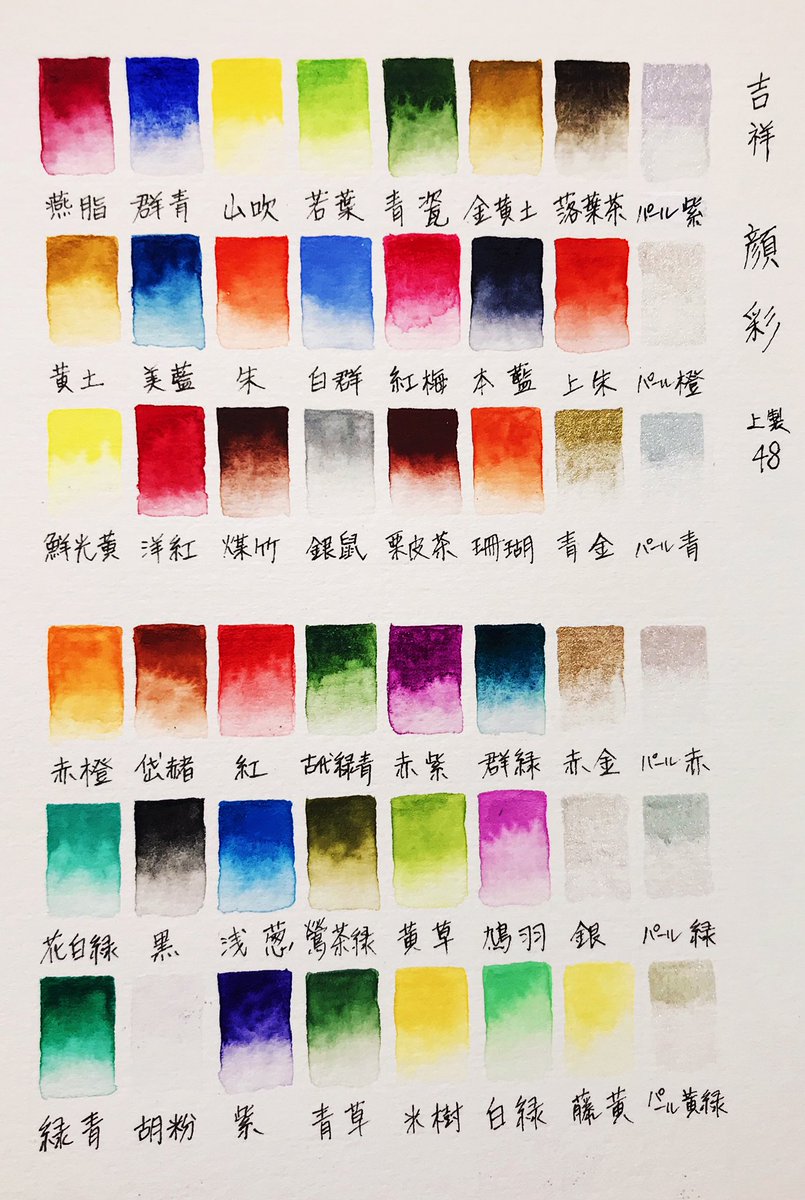 吉祥
顔彩
上製
48
燕脂 群青 山吹 若葉 青瓷 金黄土 落葉茶 パール紫
黄土 美藍 朱 白群 紅梅 本藍 上朱 パール橙
鮮光黄 洋紅 煤竹 銀鼠 栗皮茶 珊瑚 青金 パール青
赤橙 岱赭 紅 古代緑青 赤紫 群緑 赤金 パール赤
花白緑 黒 浅葱 鶯茶緑 黄草 鳩羽 銀 パール緑
緑青 胡粉 紫 青草 水樹 白緑 藤黄 パール黄緑